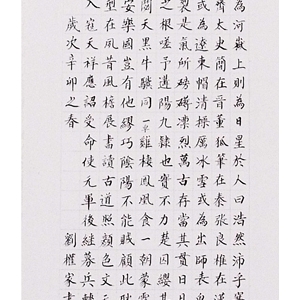 為河嶽上則為日星於人曰浩然沛乎塞
齊太史簡在晉董狐筆在秦張良椎在漢
為遼東帽清操厲冰雪或為出師表鬼
製是氣所磅礴凜烈萬古存當其貫日月
之根嗟予遘陽九隸也實不力楚囚纓其
闐天黑牛驥同一皁雞棲鳳凰食一朝蒙霧
安樂國豈有他繆巧陰陽不能賊顧此耿
型在夙昔風檐展書讀古道照顏色文天
入寇天祥應詔受命使元軍後經募兵轉
歲次辛卯之春 劉權家書